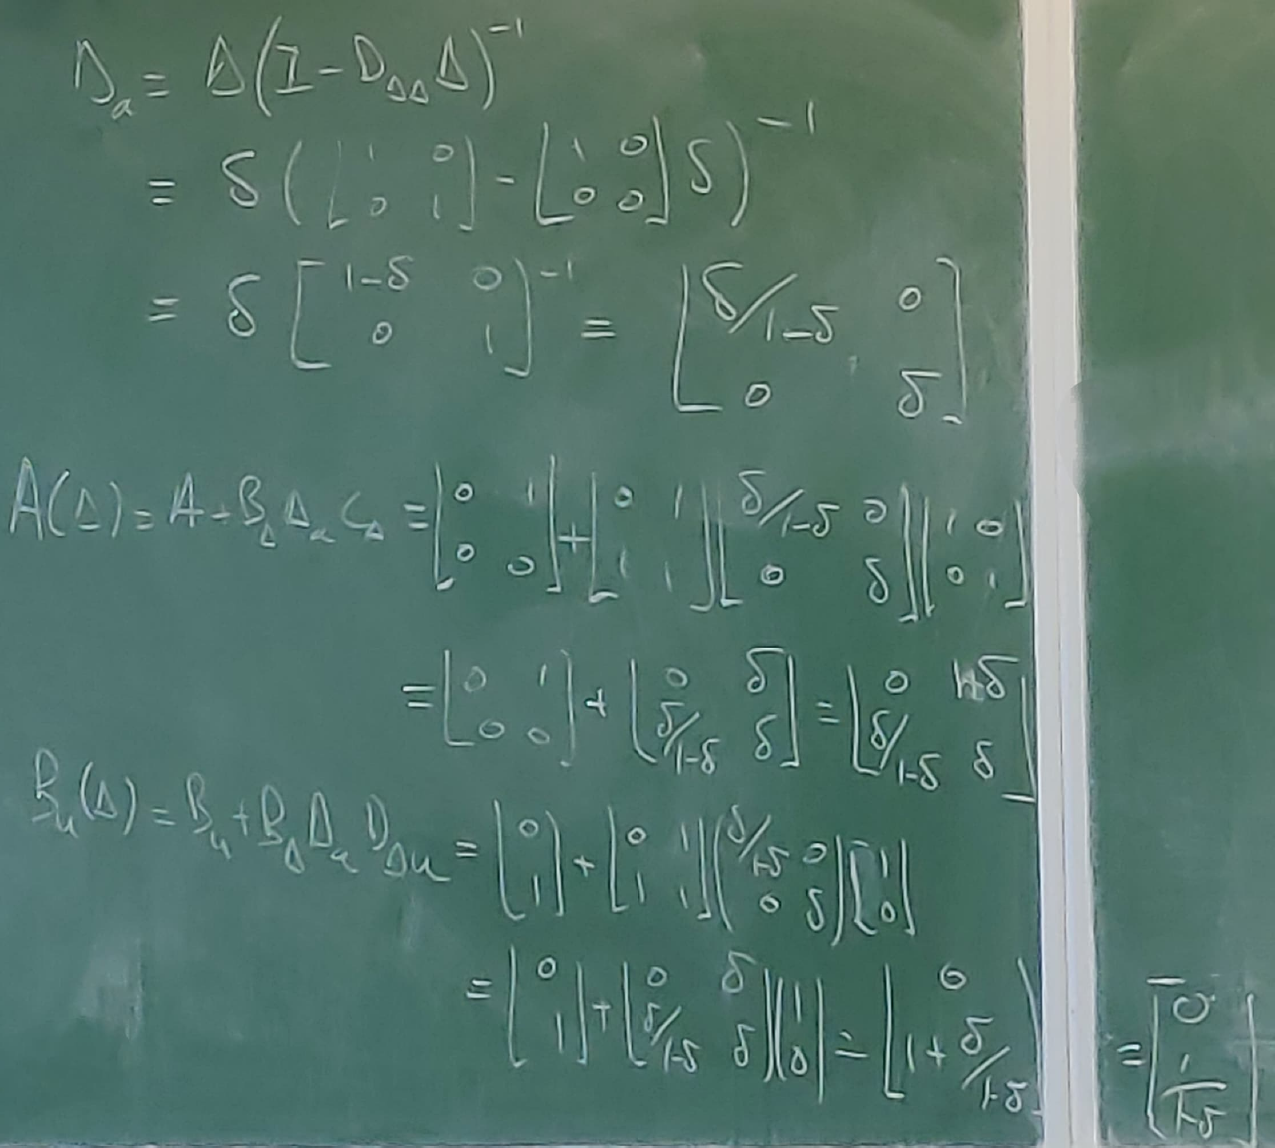 Δₐ = Δ(I − D_ΔΔ Δ)⁻¹
= δ([1 0; 0 1] − [1 0; 0 0] δ)⁻¹
= δ [1−δ 0; 0 1]⁻¹ = [δ/1−δ 0; 0 δ]
A(Δ) = A + B_Δ Δₐ C_Δ = [0 1; 0 0] + [0 1; 1 1][δ/1−δ 0; 0 δ][1 0; 0 1]
= [0 1; 0 0] + [0 δ; δ/1−δ δ] = [0 1+δ; δ/1−δ δ]
B_u(Δ) = B_u + B_Δ Δₐ D_Δu = [0; 1] + [0 1; 1 1](δ/1−δ 0; 0 δ)[1; 0]
= [0; 1] + [0 δ; δ/1−δ δ][1; 0] = [0; 1 + δ/1−δ] = [0; 1/1−δ]